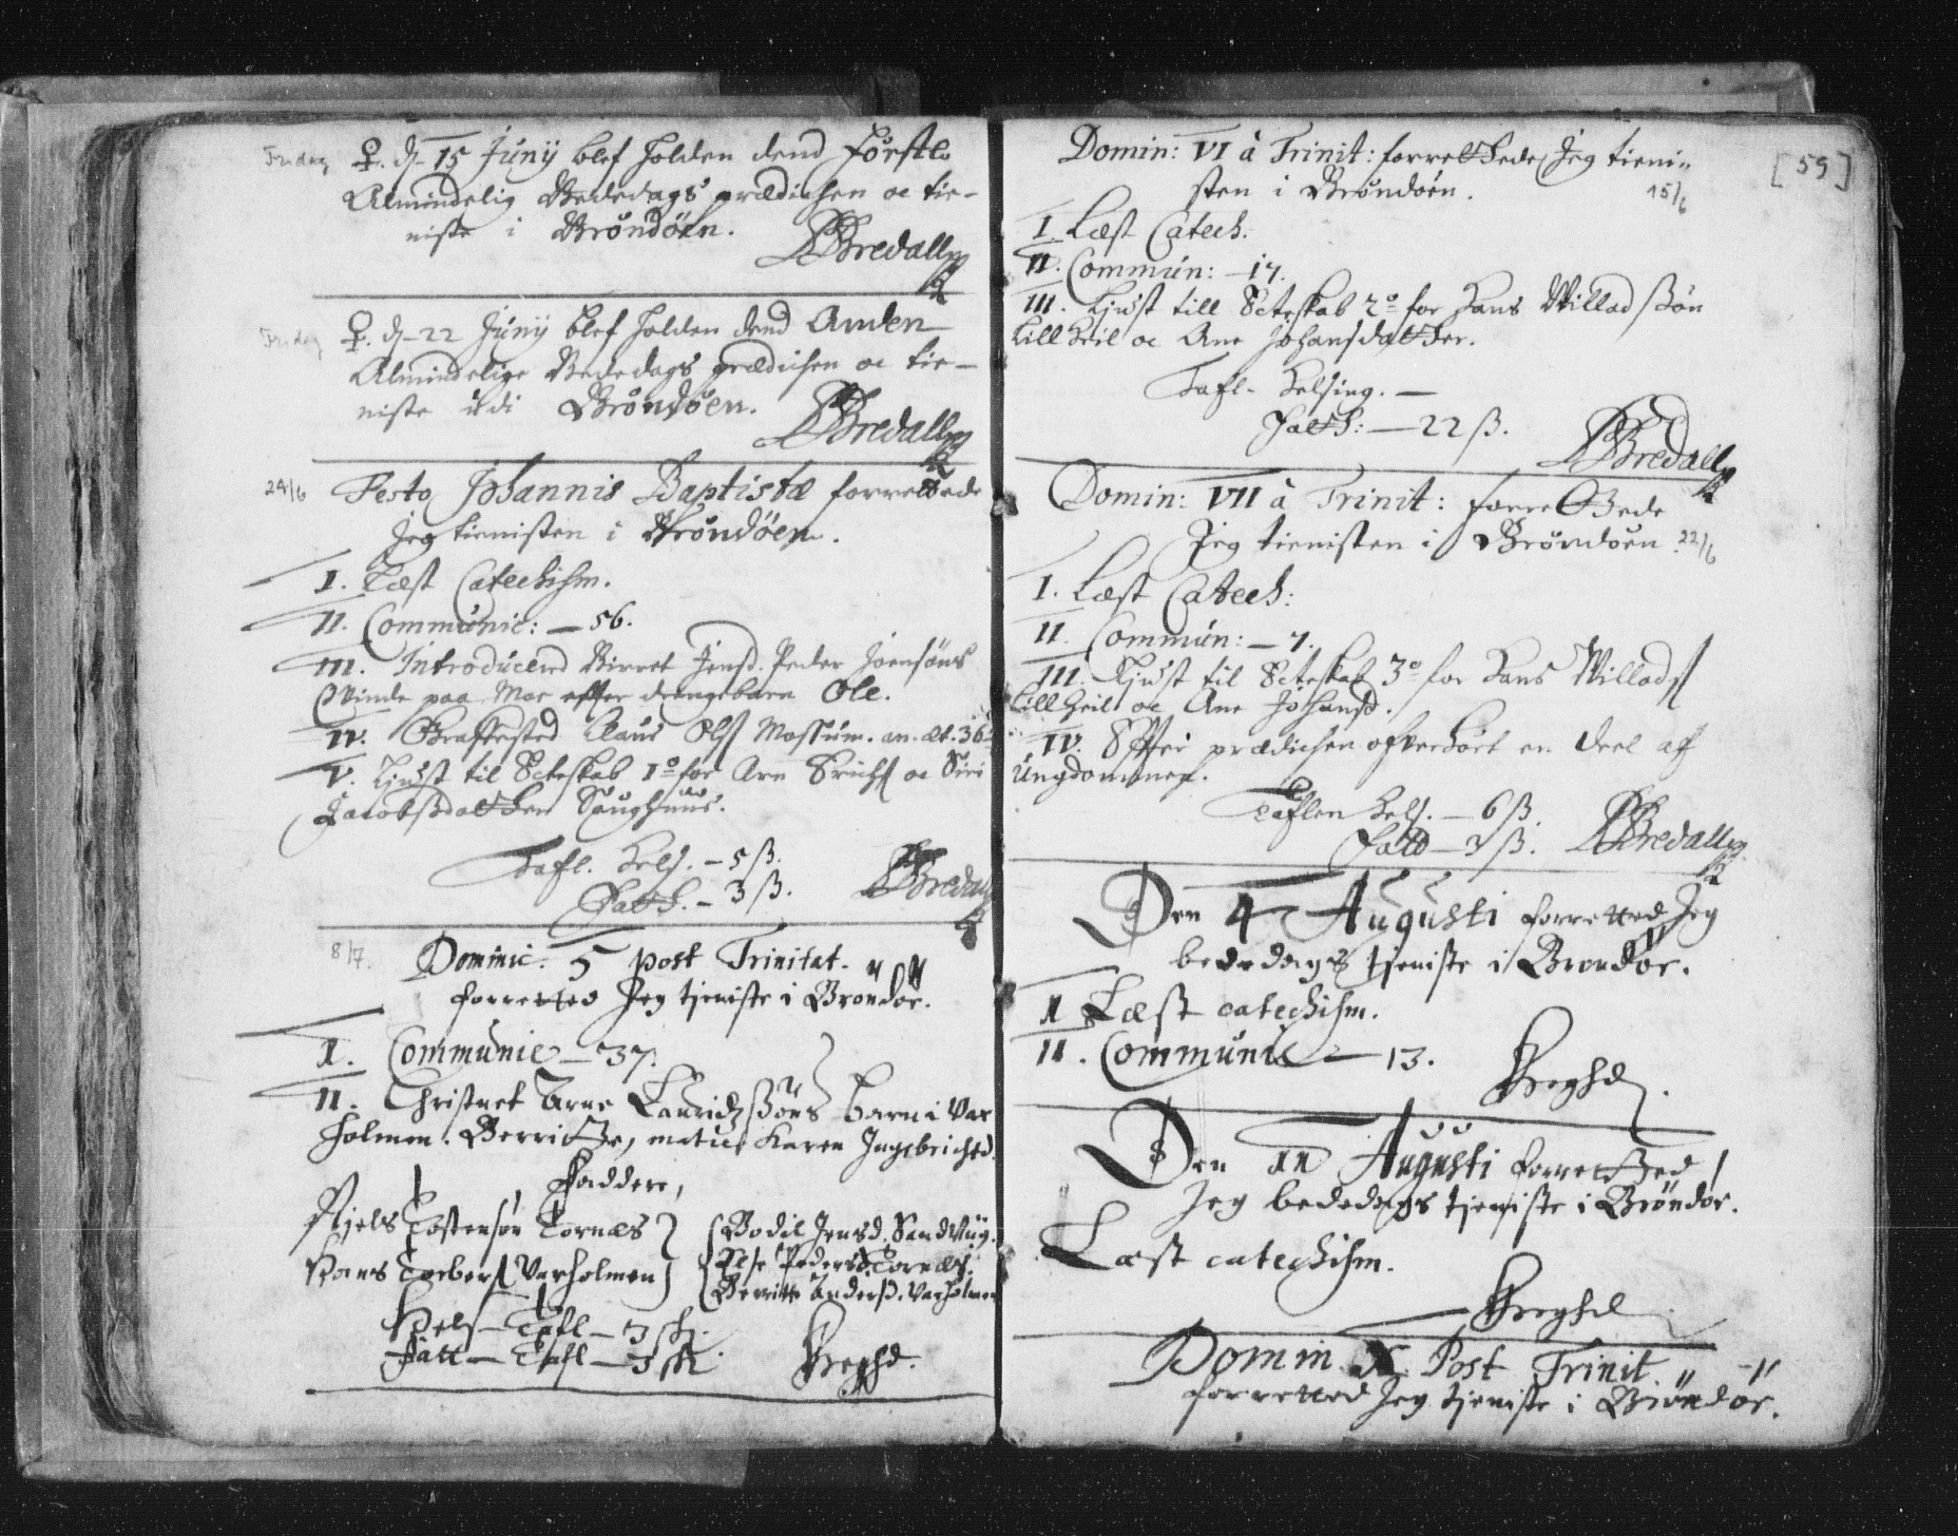 Fredag ♀. d. 15 Junij blef holden dend første
Almindelig Bededags prædichen oc tie-
niste i Brøndöen.
PBredall
Fredag ♀. d. 22 Junij blef holden dend Anden
Almindelige Bededags prædichen oc tie-
niste udi Brøndöen.
PBredall
24/6 Festo Johannis Baptistæ forrettede
Jeg tienisten i Brøndöen.
I. Læst Catechism.
II. Communic: — 56.
III. Introducered Birret Jensd. Peder Joensöns
Qvinde paa Moe effter drengebarn Ole.
IV. Graffested Claus Ols Mossum. an. æt. 36
V. Liust til Ecteskab 1º for Arn Erichs oc Siri
Jacobsdatther Saughuus.
Tafl. Hels. – 5 ß.
Fatth. – 3 ß.
PBredall
8/7. Dominic. 5 post Trinitat.
forretted Jeg tjeniste i Brøndöe.
I. Communic — 37.
II. Christnet Arne Lauridzsöns barn i Var
holmen. Berritthe, mater Karen Ingebrichtd.
Faddere,
Njels Tostensön Tornæs
Hans Torbers Varholmen
Bodil Jensd. Sandviig.
Else Pedersd. Tornæs.
Berritte Andersd. Varholmen
Hels — Tafl — 3 sk.
Fatt — Tafl — 3 sk
Domin: VI à Trinit: forretthede Jeg tieni-
sten i Brøndöen.
[59]
15/6
I. Læst Catech.
II. Commun: — 17.
III. Liust till Ecteskab 2º for Hans Willadsøn
Lillheil oc Ane Johansdatther.
Tafl. Helsing. —
Fatth: — 22 ß.
PBredall
Domin: VII à Trinit: forretthede
Jeg tienisten i Brøndöen. 22/6
I. Læst Catech:
II. Commun: — 7.
III. Liust til Ecteskab 3º for Hans Willads
Lillheil oc Ane Johansd.
IV. Effter prædichen offverhört en deel aff
ungdommen.
Taflen Hels. — 6 ß.
Fatt — 3 ß.
PBredall
Den 4 Augusti forretted Jeg
bededags tjeniste i Brøndöe.
I Læst catechism.
II. Communic — 13.
Den 11 Augusti forretthed
Jeg bededags tjeniste i Bröndöe.
Læst catechism.
Domin X Post Trinit
forretted Jeg tjeniste i Bröndöe.